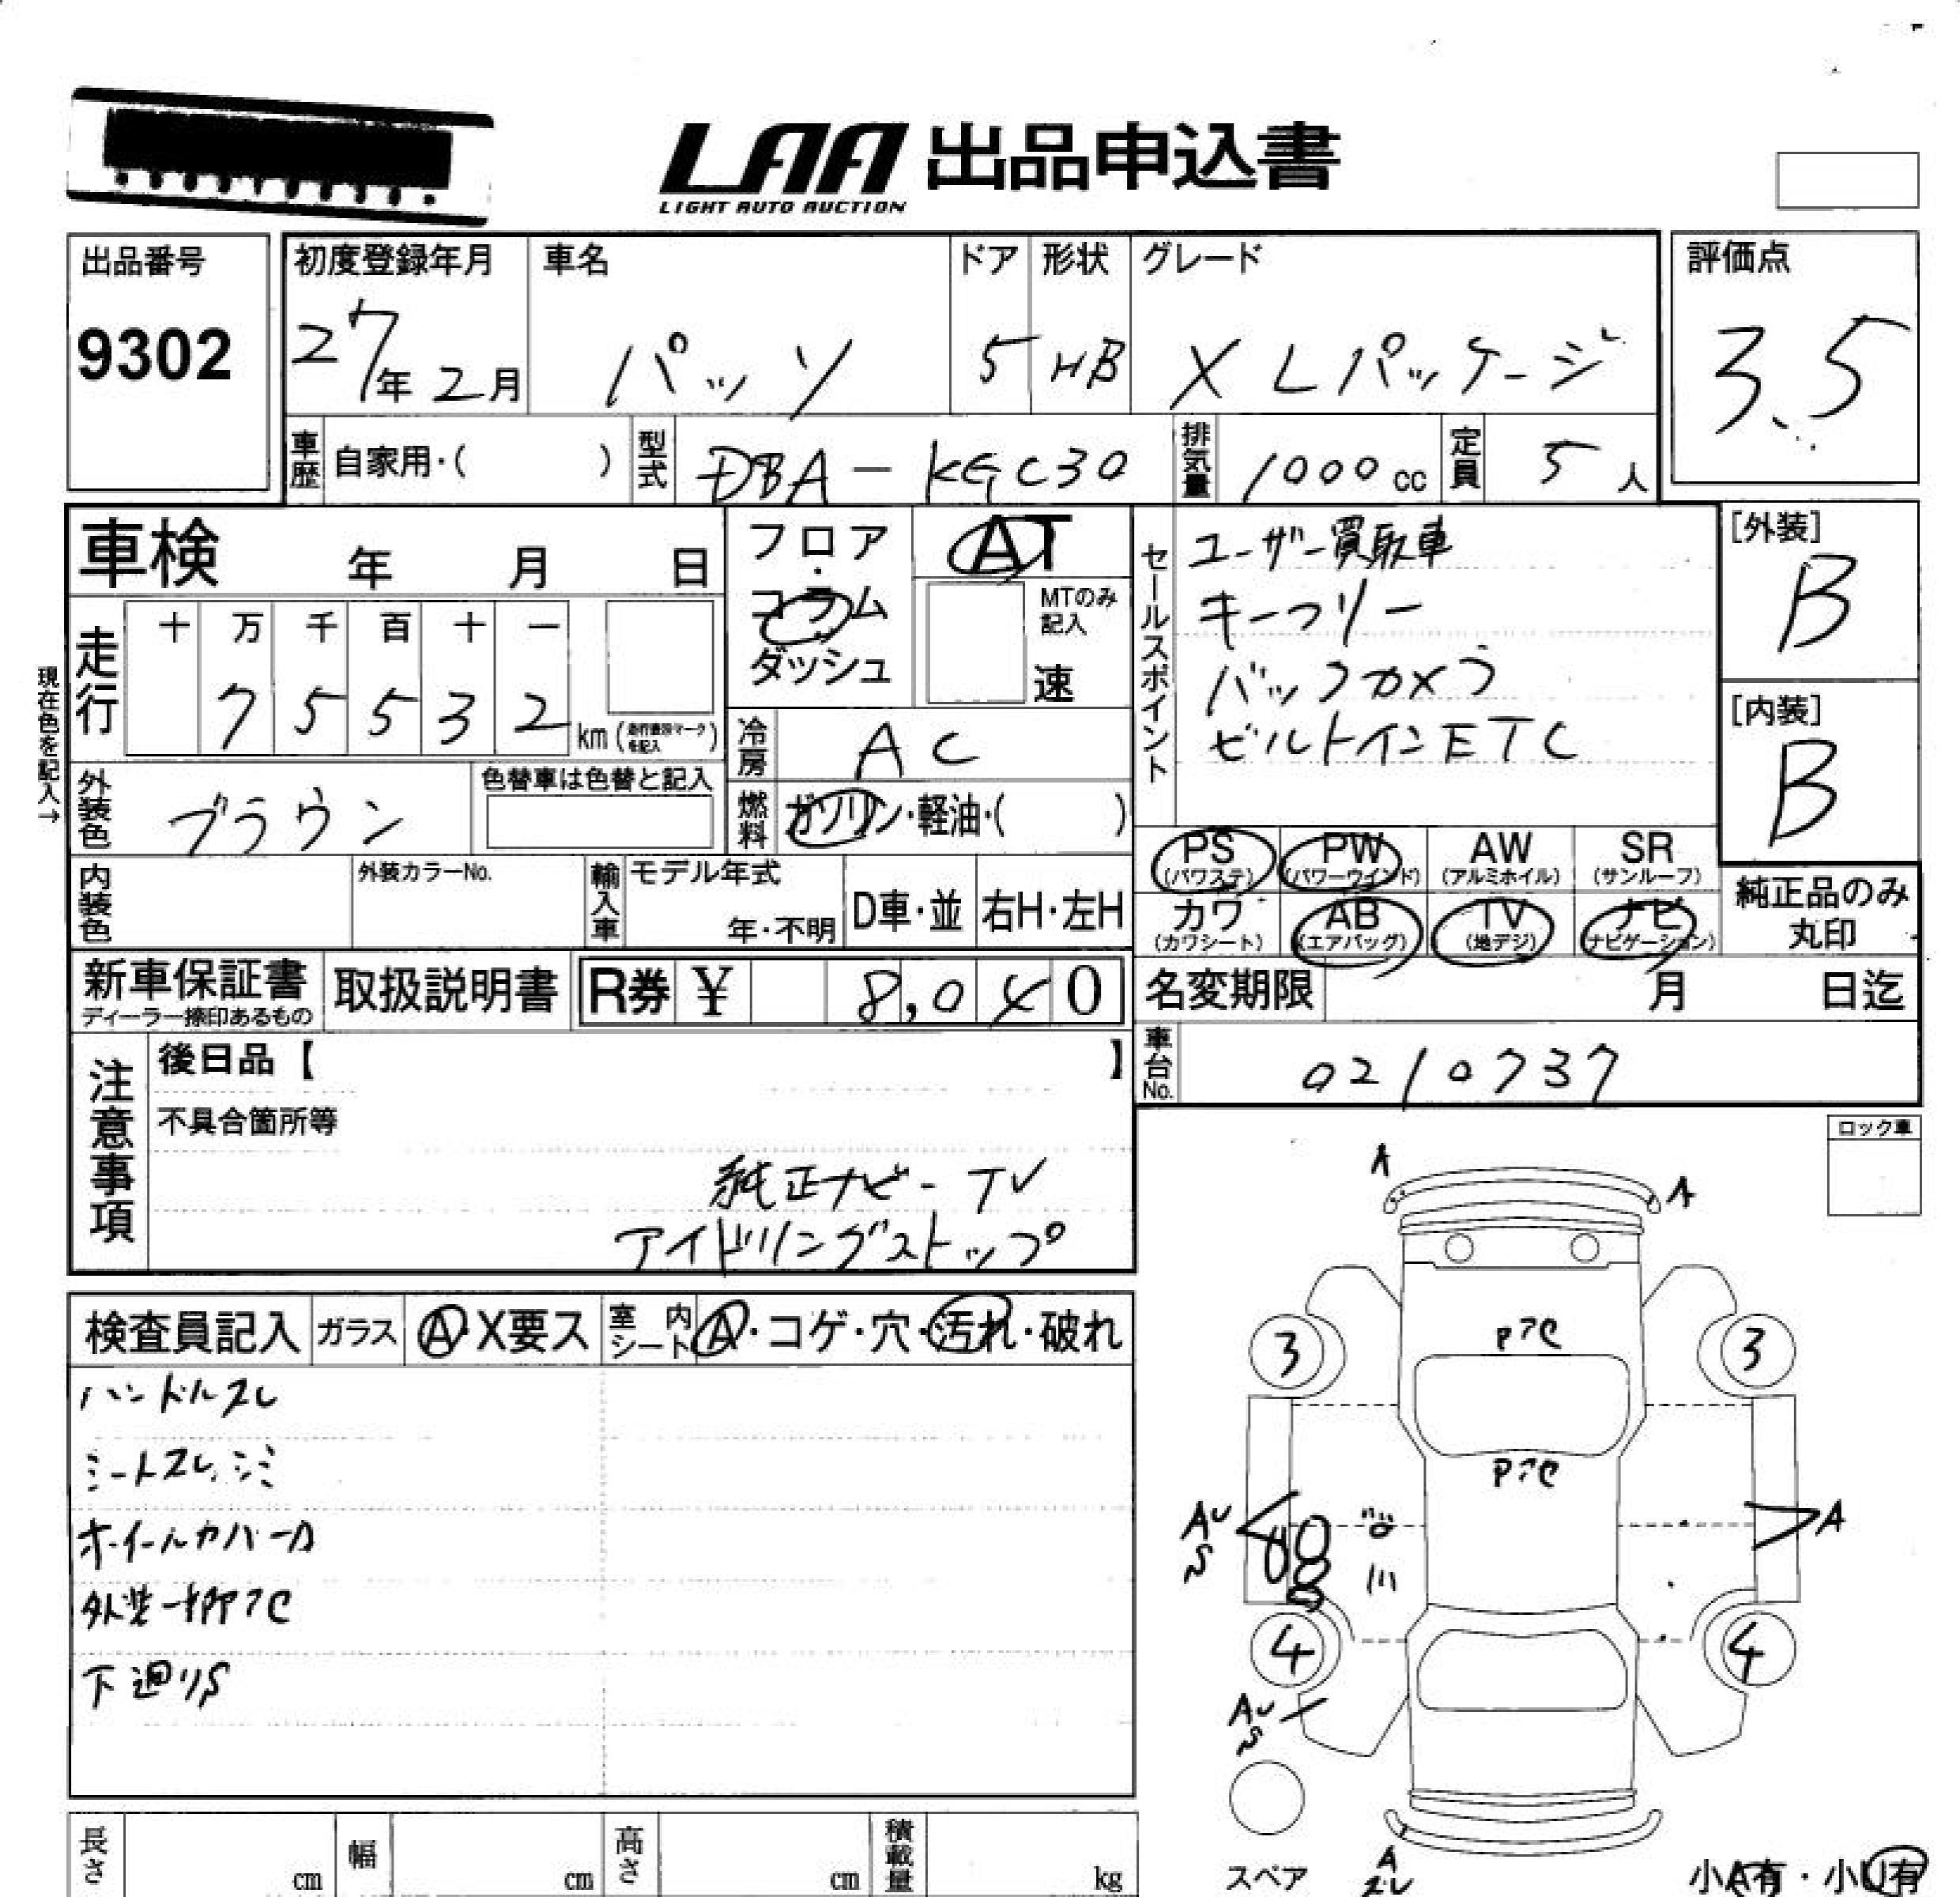 LAA 出品申込書
LIGHT AUTO AUCTION
出品番号
9302
初度登録年月
27年2月
車名
パッソ
ドア
5
形状
HB
グレード
X Lパッケージ
評価点
3.5
車歴 自家用・( )
型式 DBA-KGC30
排気量 1000cc
定員 5人
車検 年 月 日
現在色を記入→
走行
十 万 千 百 十 一
7 5 5 3 2 km (走行表示マークを記入)
フロア・
コラム
ダッシュ
AT
MTのみ
記入
速
冷房 AC
燃料 ガソリン・軽油・( )
セールスポイント
ユーザー買取車
キーフリー
バックカメラ
ビルトインETC
[外装]
B
[内装]
B
外装色 ブラウン
色替車は色替と記入
内装色
外装カラーNo.
輸入車
モデル年式
年・不明
D車・並
右H・左H
PS
(パワステ)
PW
(パワーウインド)
AW
(アルミホイル)
SR
(サンルーフ)
カワ
(カワシート)
AB
(エアバッグ)
TV
(地デジ)
ナビ
(ナビゲーション)
純正品のみ
丸印
新車保証書
ディーラー捺印あるもの
取扱説明書
R券 ¥ 8,040
名変期限 月 日迄
車台No. 0210737
注意事項
後日品【 】
不具合箇所等
純正ナビ-TV
アイドリングストップ
ロック車
検査員記入
ガラス A・X要ス
室内シート A・コゲ・穴・汚れ・破れ
ハンドルスレ
シートスレ、シミ
ホイールカバーA
下廻りS
A
A
3
3
A
AU
S
4
4
AU
S
A
スレ
スペア
小A有・小U有
長さ cm
幅 cm
高さ cm
積載量 kg